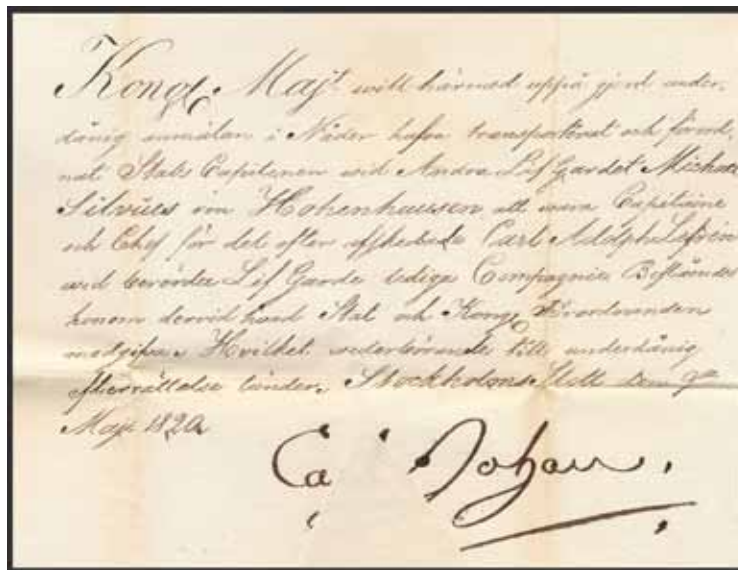 Kongl. Maj:t will härmed uppå gjord under-
dånig anmälan i Nåder hafva transporterat och förord-
nat Stabs Capitenen wid Andra Lif Gardet Michael
Silvius von Hohenhausen att vara Capitaine
och Chef för det efter afskedade Carl Adolph
wid berörde Lif Garde lediga Compagnie, Bestående
honom dervid hvad Stat och Kongl. Förordningen
medgifva. Hvilket wederbörande till underdånig
efterrättelse länder. Stockholms Slott den 9de
Maji 1820.
Ca Johan.